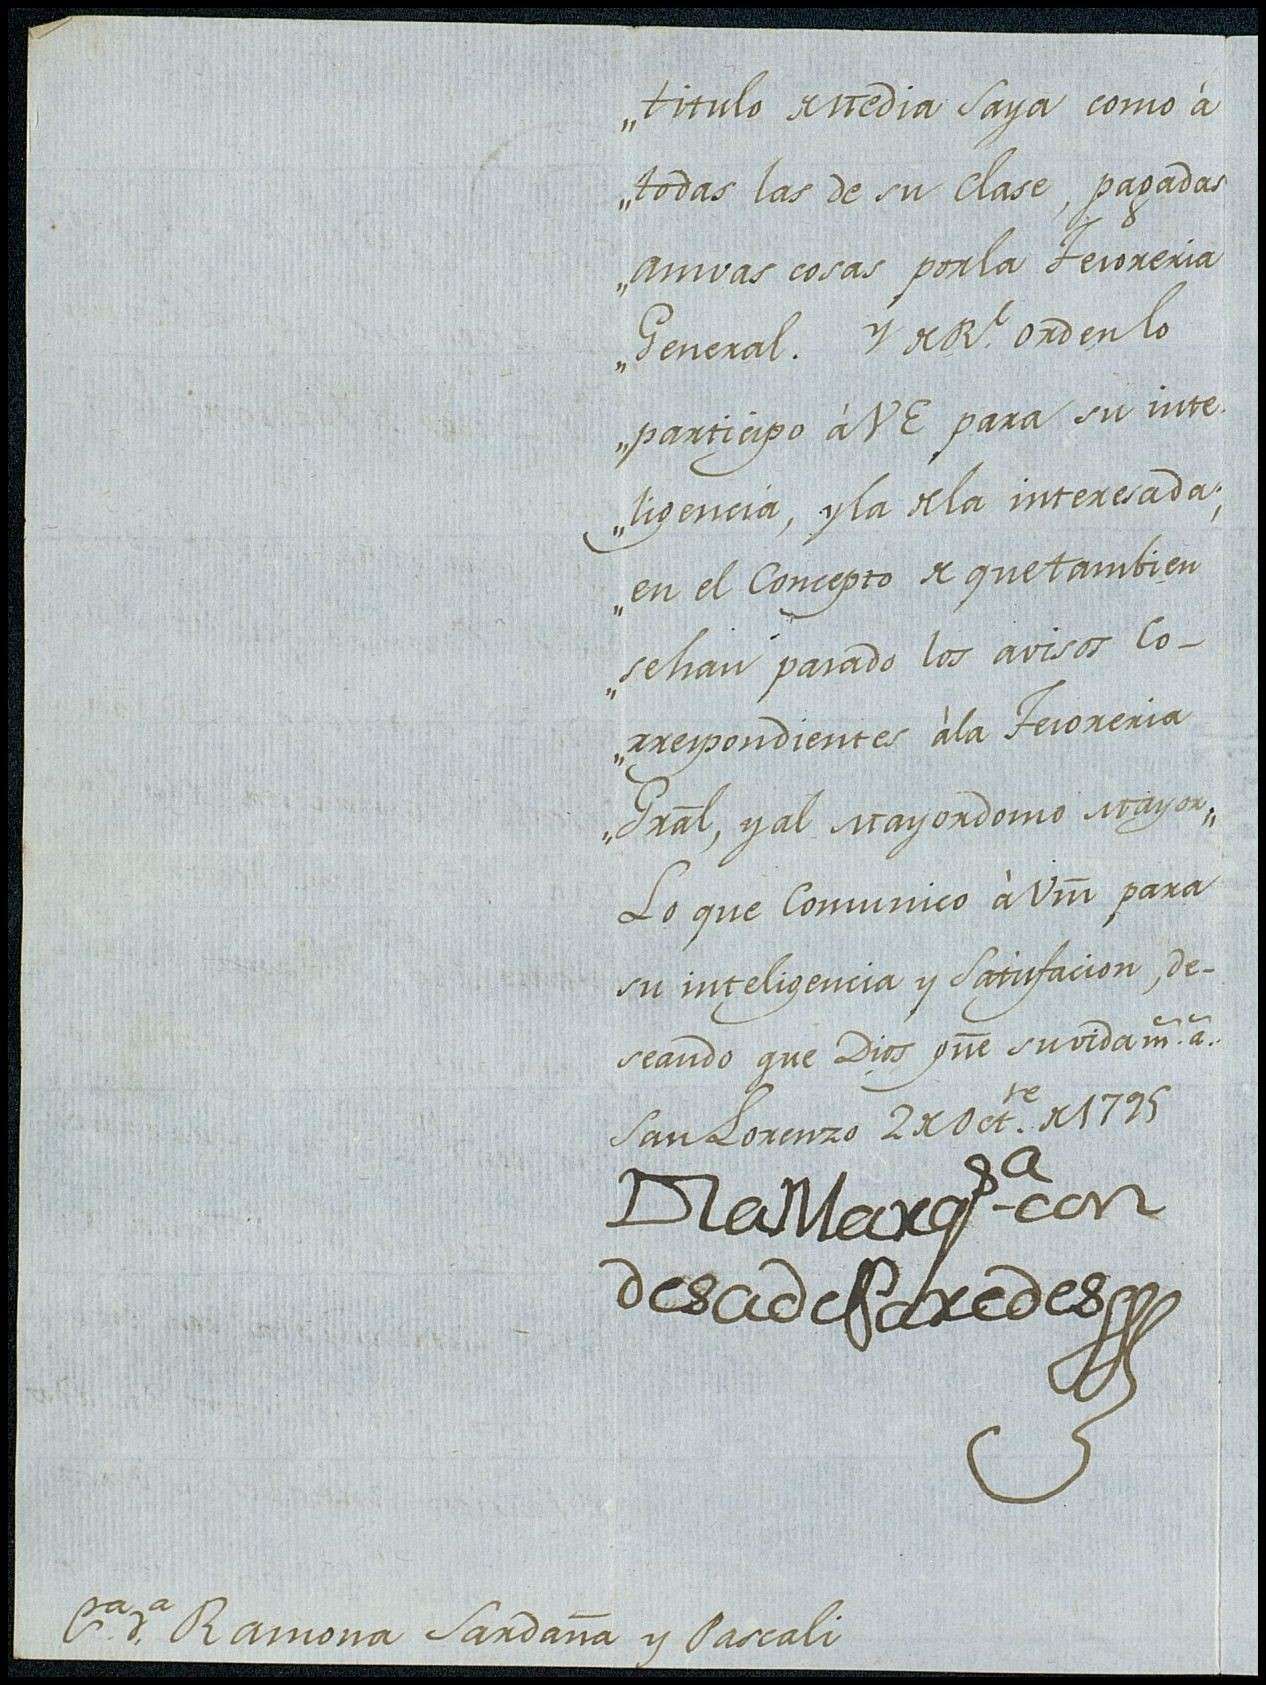 „titulo de Media Saya como à
„todas las de su Clase, pagadas
„amvas cosas por la Tesoreria
„General. Y de Rl. orden lo
„participo à VE para su inte-
„ligencia, y la de la interesada;
„en el Concepto de que tambien
„se han pasado los avisos Co-
„rrespondientes à la Tesoreria
„Grāl, y al Mayordomo Mayor„
Lo que Comunico à Vm̄ para
su inteligencia y Satisfacion, de-
seando que Dios gūe su vida m̃. ã.
San Lorenzo 2 de Octre. de 1795
D la Marqsa. con
desa de Paredes
Sra. Da. Ramona Sardaña y Pascali